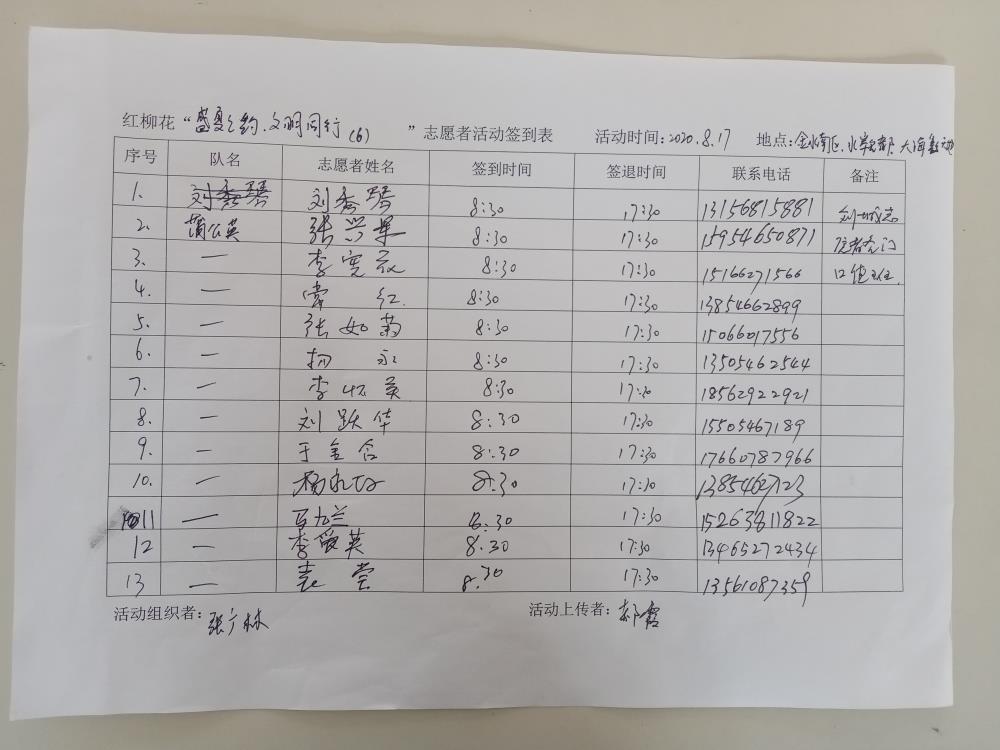 红柳花“盛夏之约.文明同行(6)”志愿者活动签到表 活动时间:2020.8.17 地点:金水南区.水
序号 队名 志愿者姓名 签到时间 签退时间 联系电话 备注
1. 刘秀琴 刘秀琴 8:30 17:30 13156815881
2. 蒲公英 张兴果 8:30 17:30 15954650871
3. — 李宪 8:30 17:30 15166271566 口值班.
4. — 常红 8:30 17:30 13854662899
5. — 张如菊 8:30 17:30 15066017556
6. — 杨永 8:30 17:30 13505462544
7. — 李怀英 8:30 17:30 18562922921
8. — 刘跃华 8:30 17:30 15505467189
9. — 于金含 8:30 17:30 17660787966
10. — 8.30 17:30 13854627123
11 — 马九兰 8:30 17:30 15263811822
12 — 李爱英 8.30 17:30 13465272434
13 — 袁堂 8:30 17:30 13561087359
活动组织者:张广林 活动上传者:郝霞